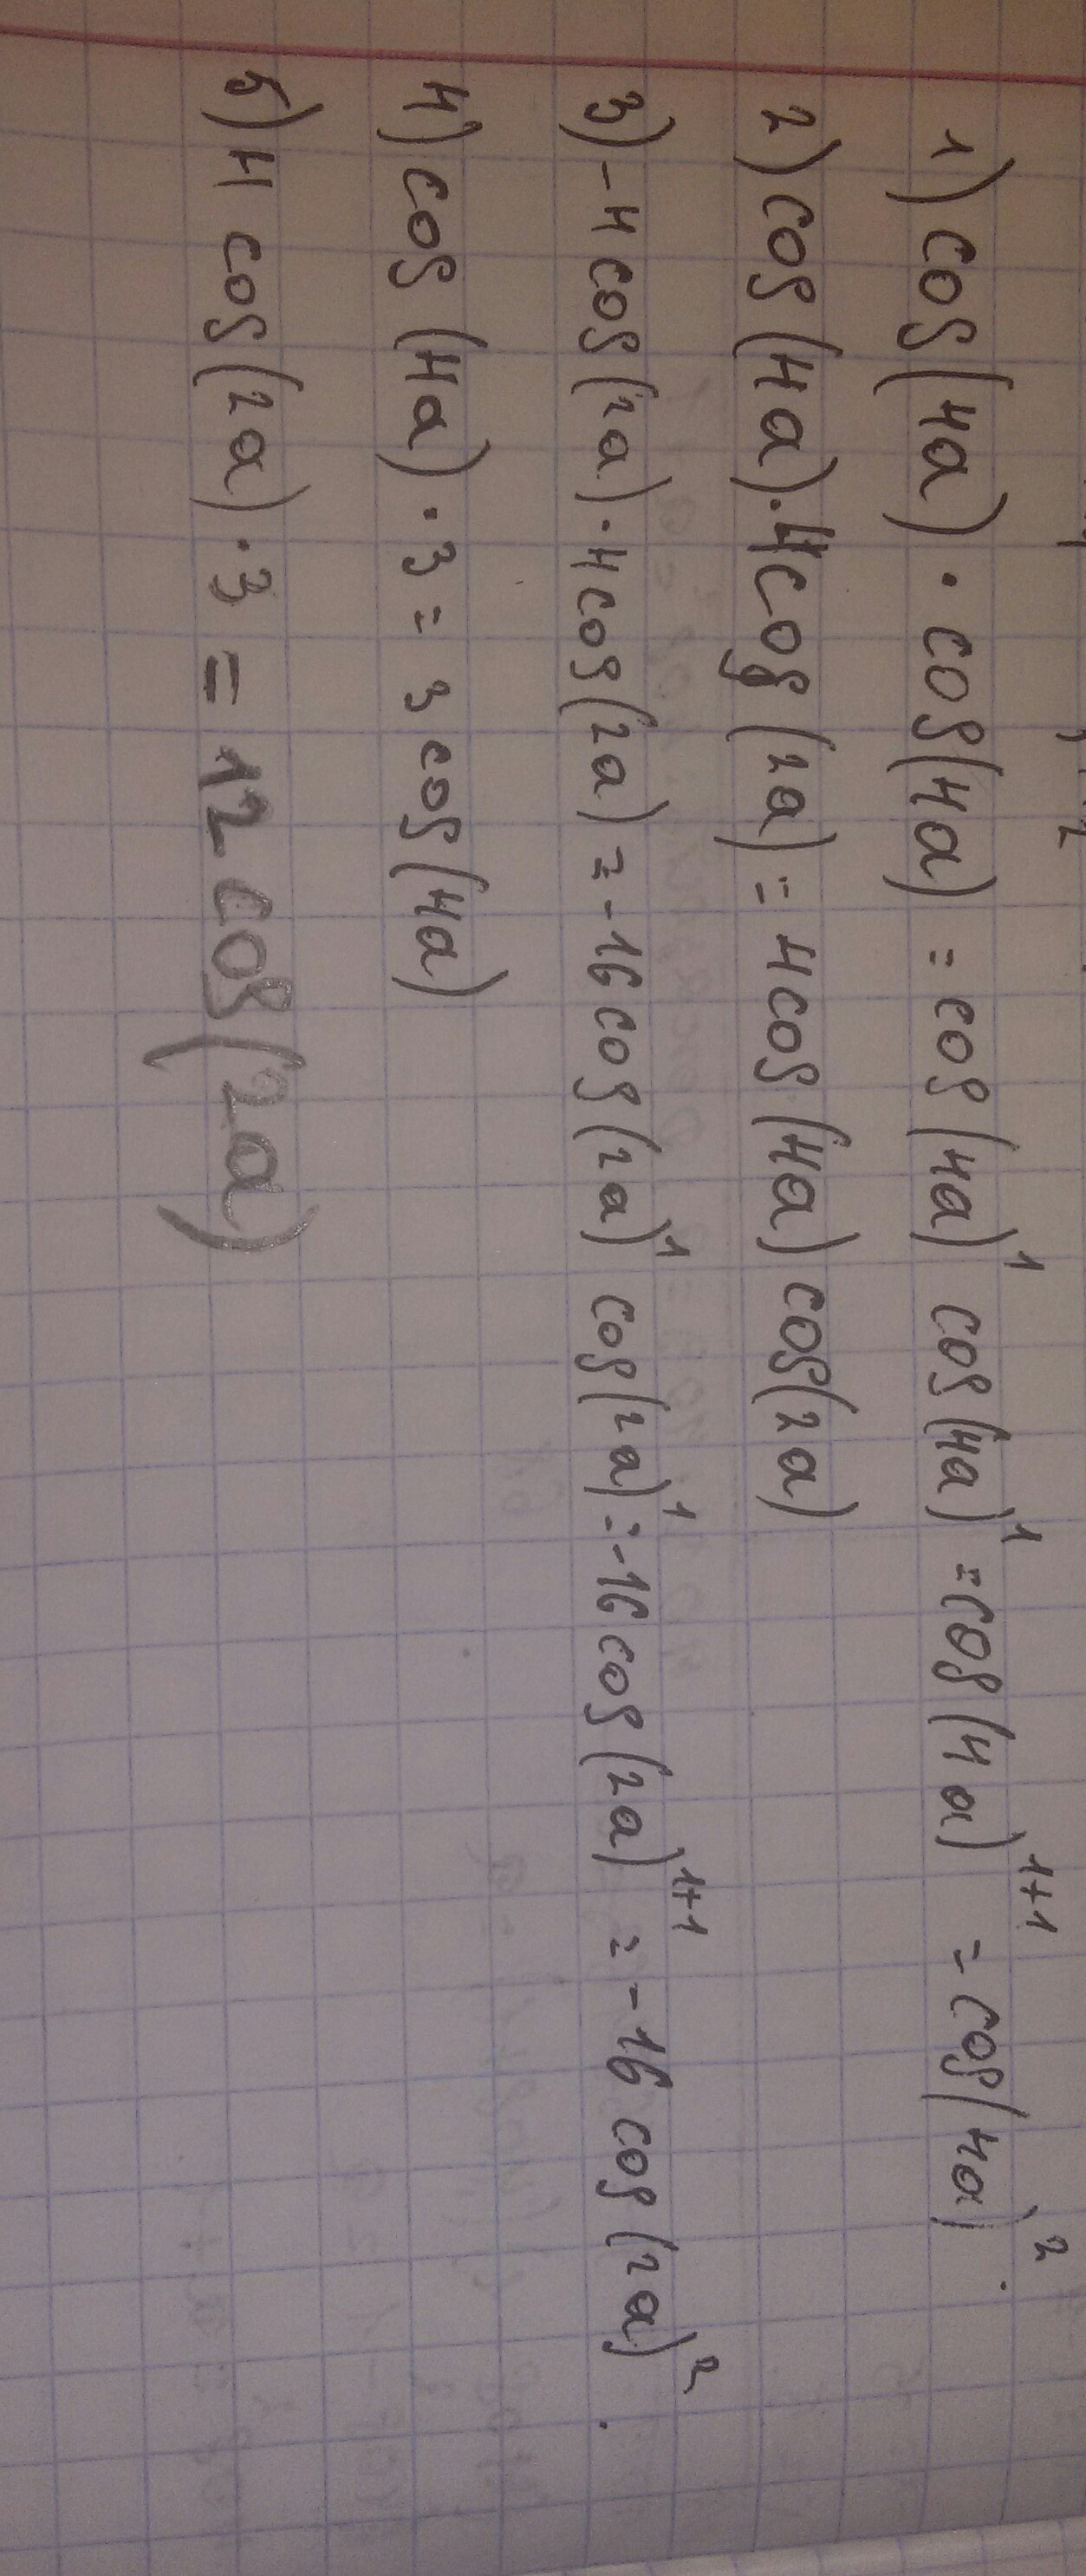 1) cos(4a) · cos(4a) = cos(4a)¹ cos(4a)¹ = cos(4a)¹⁺¹ = cos(4a)²
2) cos(4a) · 4cos(2a) = 4cos(4a) cos(2a)
3) -4cos(2a) · 4cos(2a) = -16cos(2a)¹ cos(2a)¹ = -16cos(2a)¹⁺¹ = -16cos(2a)²
4) cos(4a) · 3 = 3cos(4a)
5) 4cos(2a) · 3 = 12cos(2a)